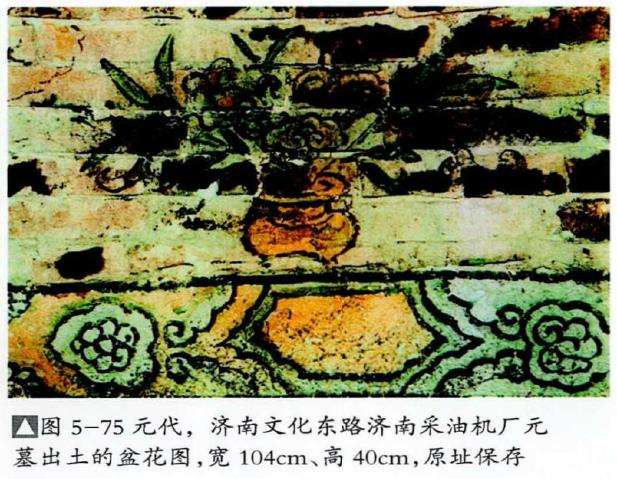 图 5-75 元代，济南文化东路济南采油机厂元
墓出土的盆花图,宽 104cm、高 40cm,原址保存